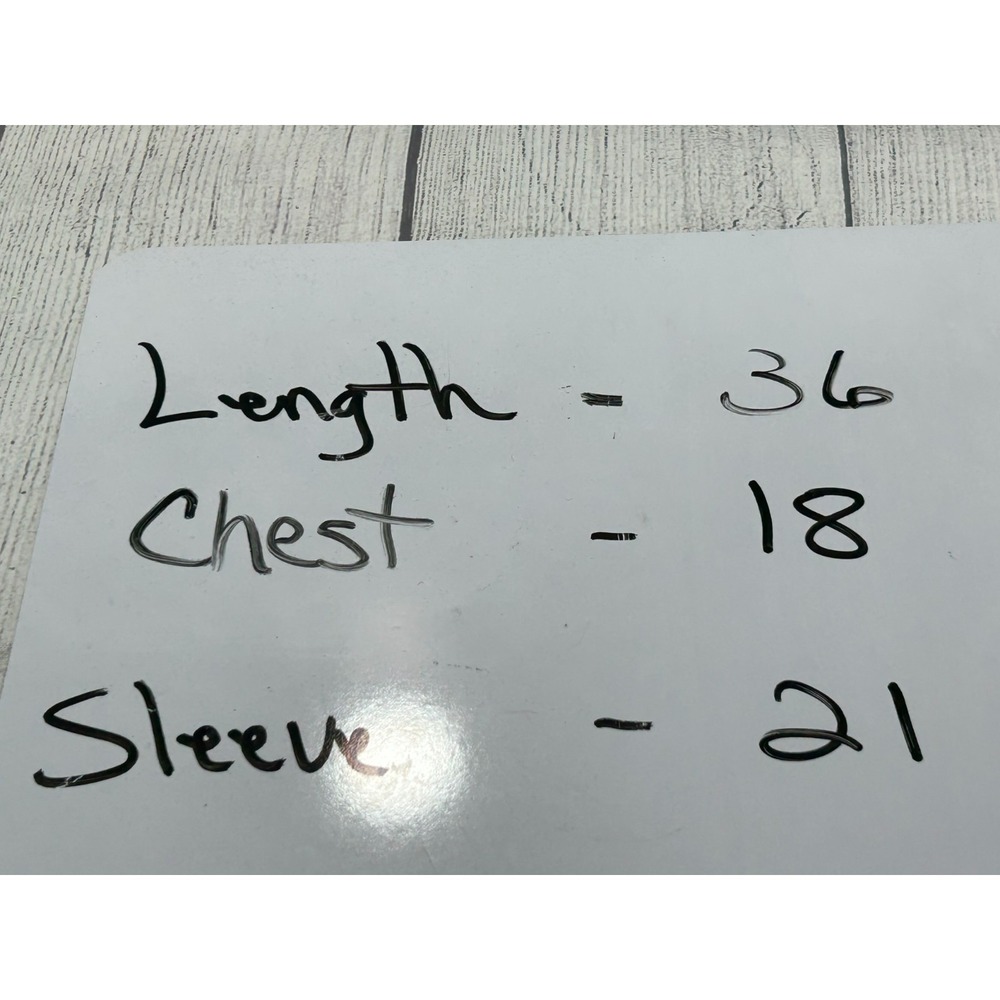 Length - 36
Chest - 18
Sleeve - 21